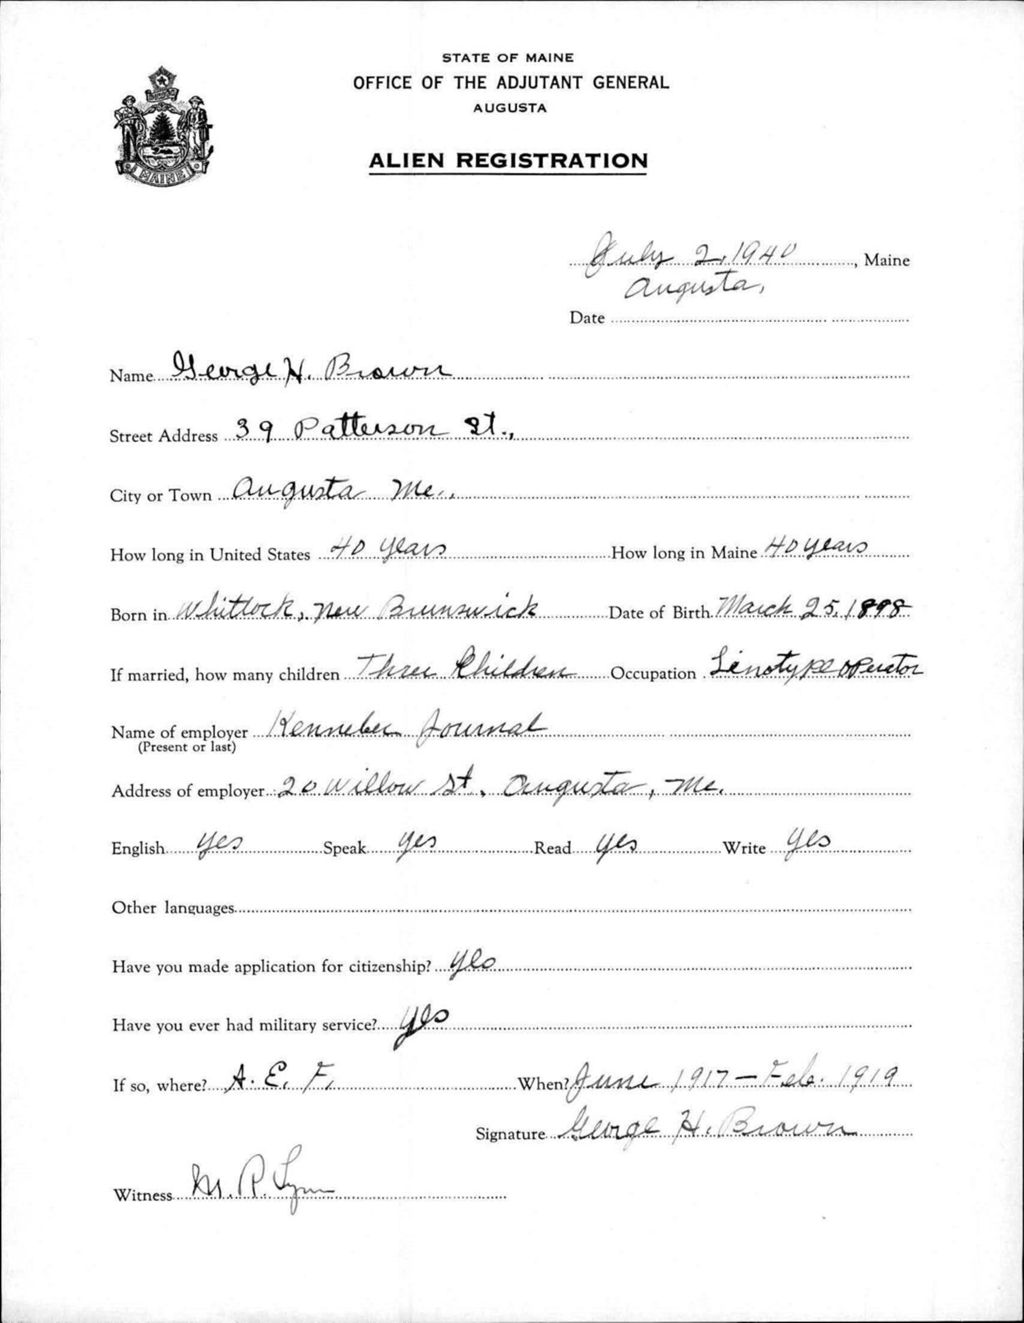 STATE OF MAINE
OFFICE OF THE ADJUTANT GENERAL
AUGUSTA
ALIEN REGISTRATION
MAINE
July 2, 1940, Maine
Augusta,
Date
Name George H. Brown
Street Address 39 Patterson St.,
City or Town Augusta Me.,
How long in United States 40 years How long in Maine 40 years
Born in Whitlock, New Brunswick Date of Birth March 25, 1898
If married, how many children Three Children Occupation Linotype operator
Name of employer Kennebec Journal
(Present or last)
Address of employer 20 Willow St. Augusta, Me.
English yes Speak yes Read yes Write yes
Other languages
Have you made application for citizenship? yes
Have you ever had military service? yes
If so, where? A. E. F. When? June 1917 — Feb. 1919
Signature George H. Brown
Witness M. R. Lynn